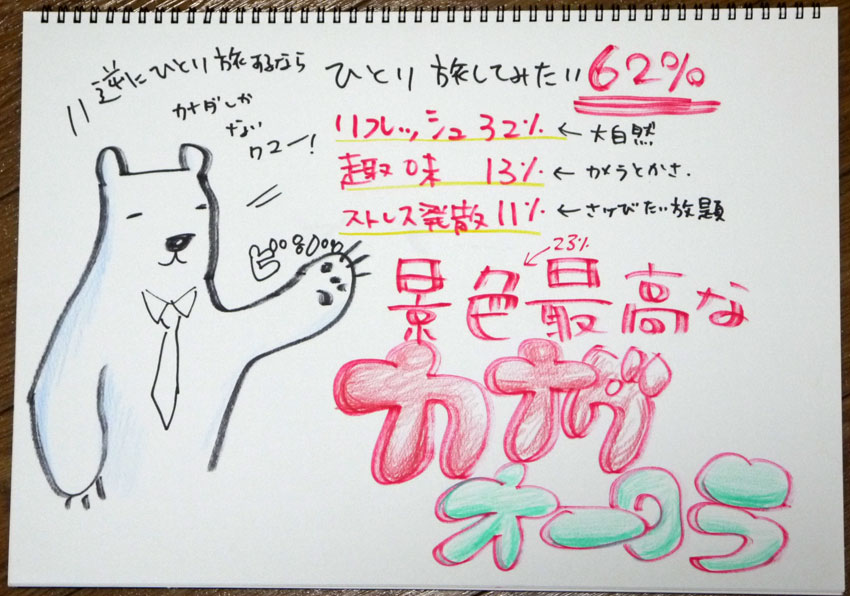 逆にひとり旅するなら
カナダしか
ない
クマー!
ひとり旅してみたい 62%
リフレッシュ 32% ← 大自然
趣味 13% ← カメラとかさ.
ストレス発散 11% ← さけびたい放題
23%
景色最高な
カナダ
オーロラ